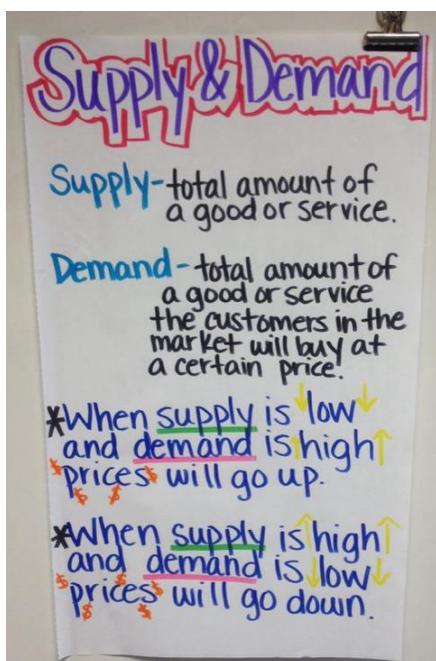 Supply & Demand
Supply-total amount of
a good or service.
Demand-total amount of
a good or service
the customers in the
market will buy at
a certain price.
*When supply is ↓low↓
and demand is↑high↑
$prices$ will go up.
$ $
*When supply is↑high↑
and demand is↓low↓
$prices$ will go down.
$ $